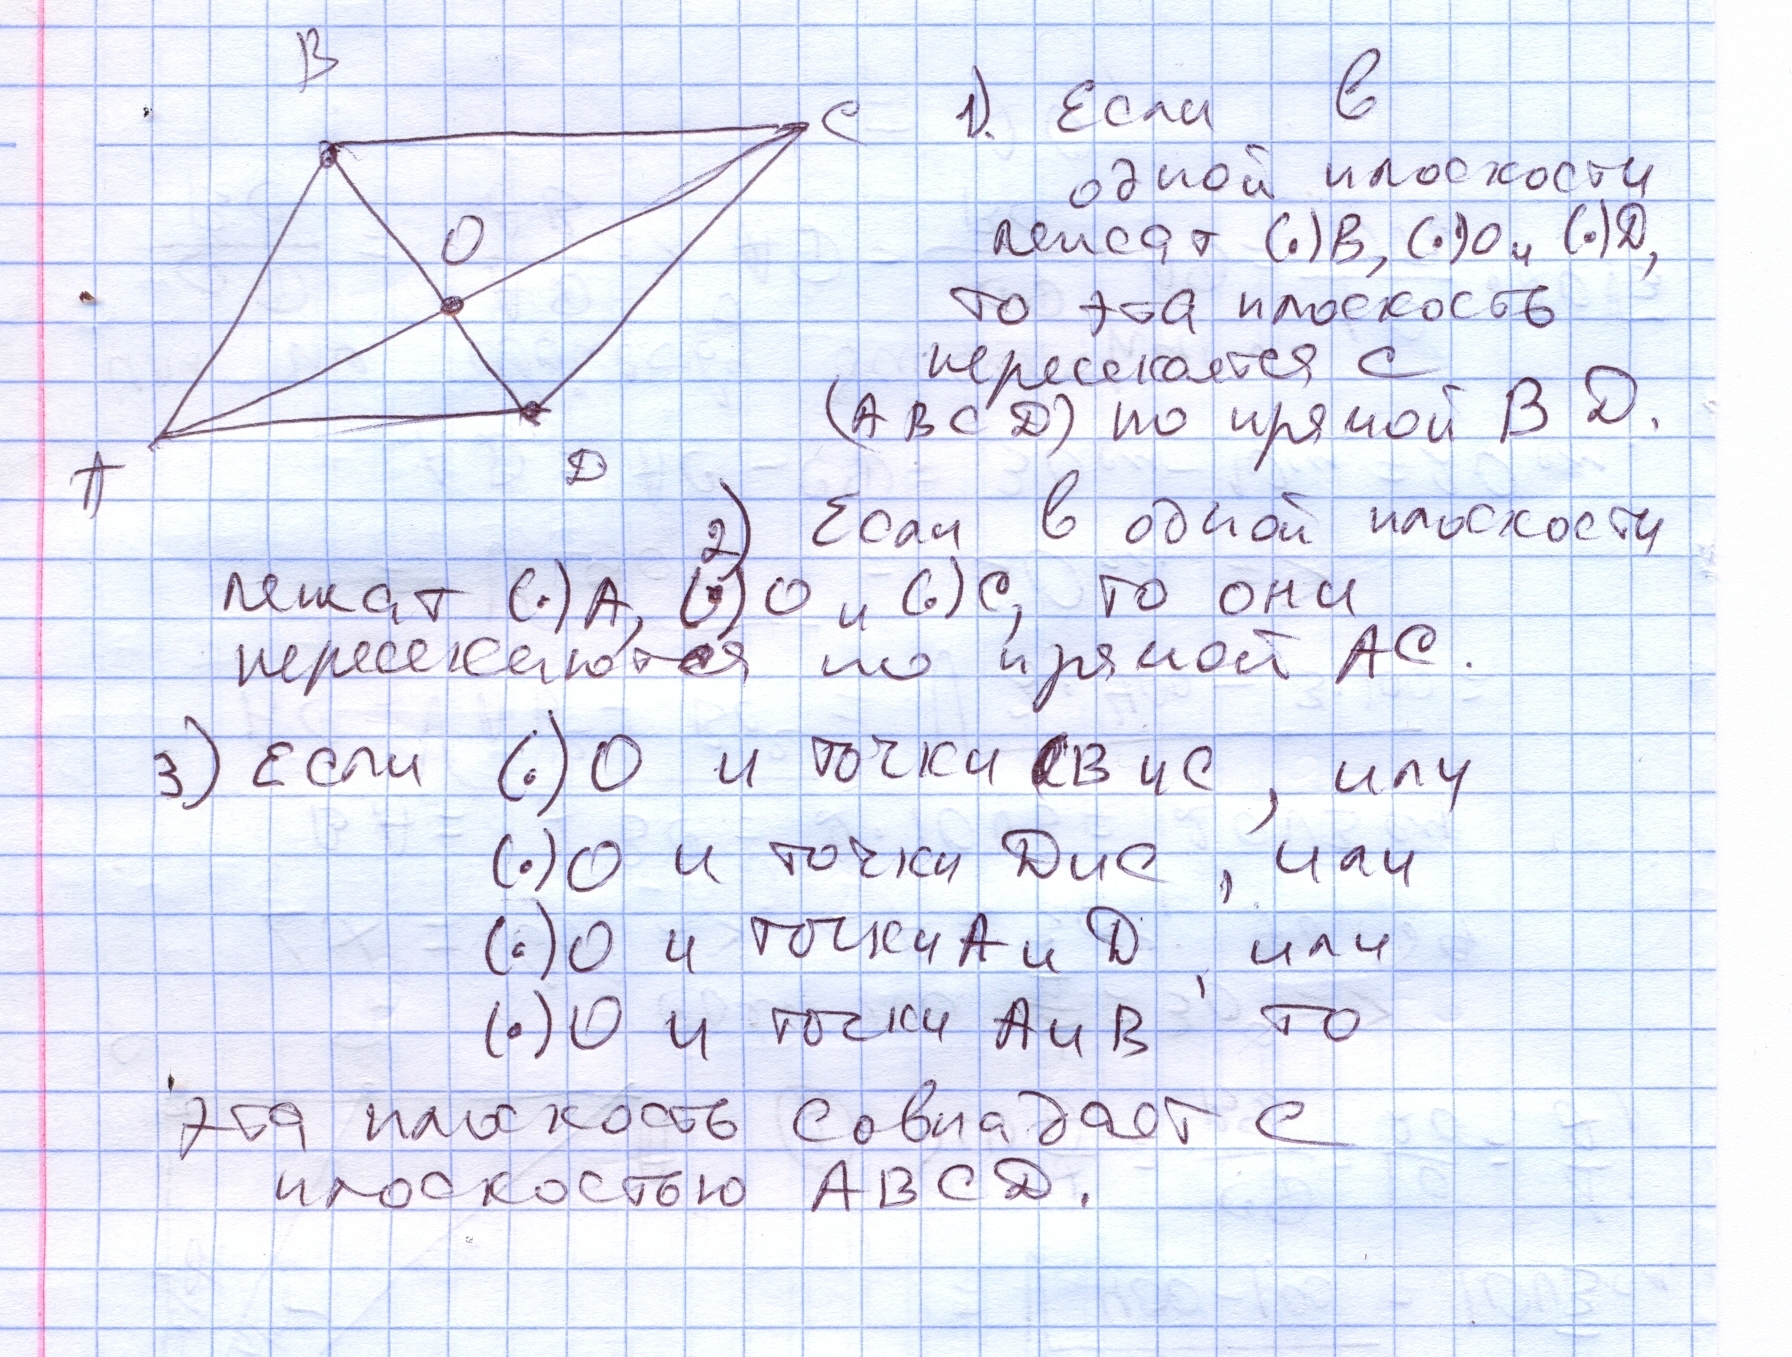 B
C
O
A
D
1). Если в
одной плоскости
лежат (.)B, (.)O и (.)D,
то эта плоскость
пересекается с
(ABCD) по прямой BD.
2) Если в одной плоскости
лежат (.)A, (.)O и (.)C, то они
пересекаются по прямой AC.
3) Если (.)O и точки B и C, или
(.)O и точки D и C, или
(.)O и точки A и D, или
(.)O и точки A и B то
эта плоскость совпадает с
плоскостью ABCD.